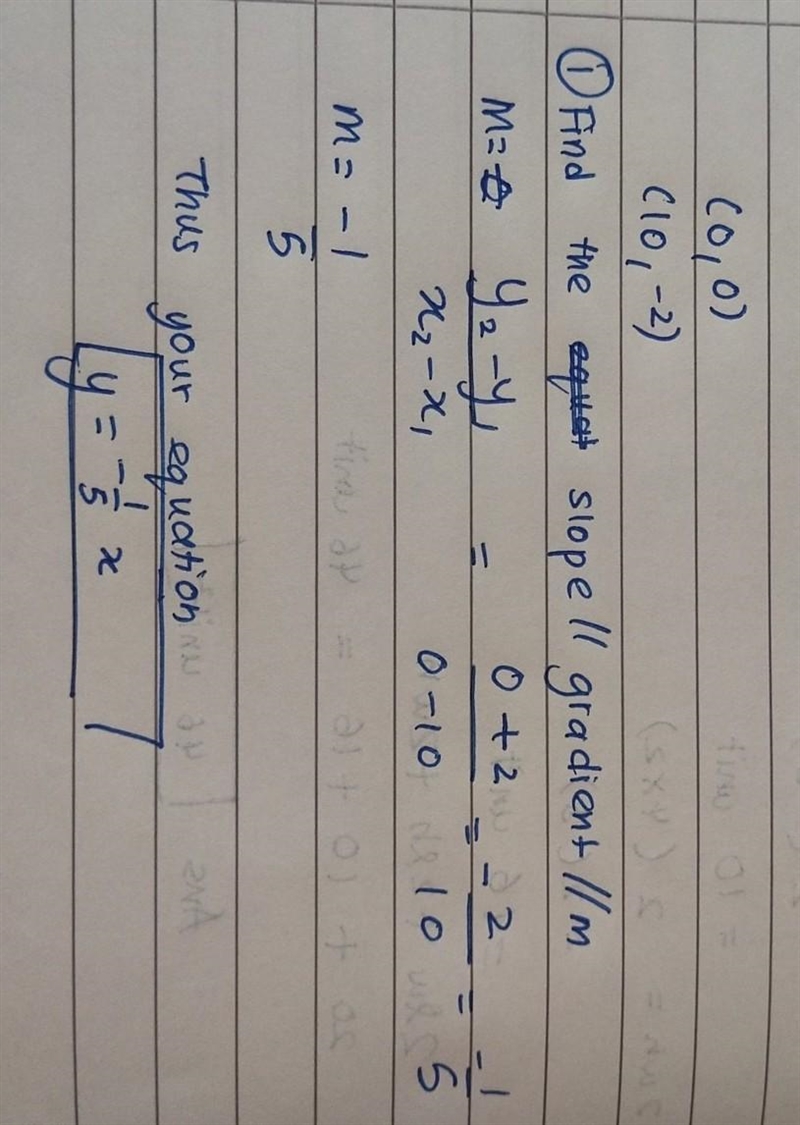 (0, 0)
(10, -2)
① Find the slope // gradient // m
M = y₂ - y₁ / x₂ - x₁ = 0 + 2 / 0 - 10 = - 2 / 10 = -1 / 5
m = -1 / 5
Thus your equation
y = -1/5 x